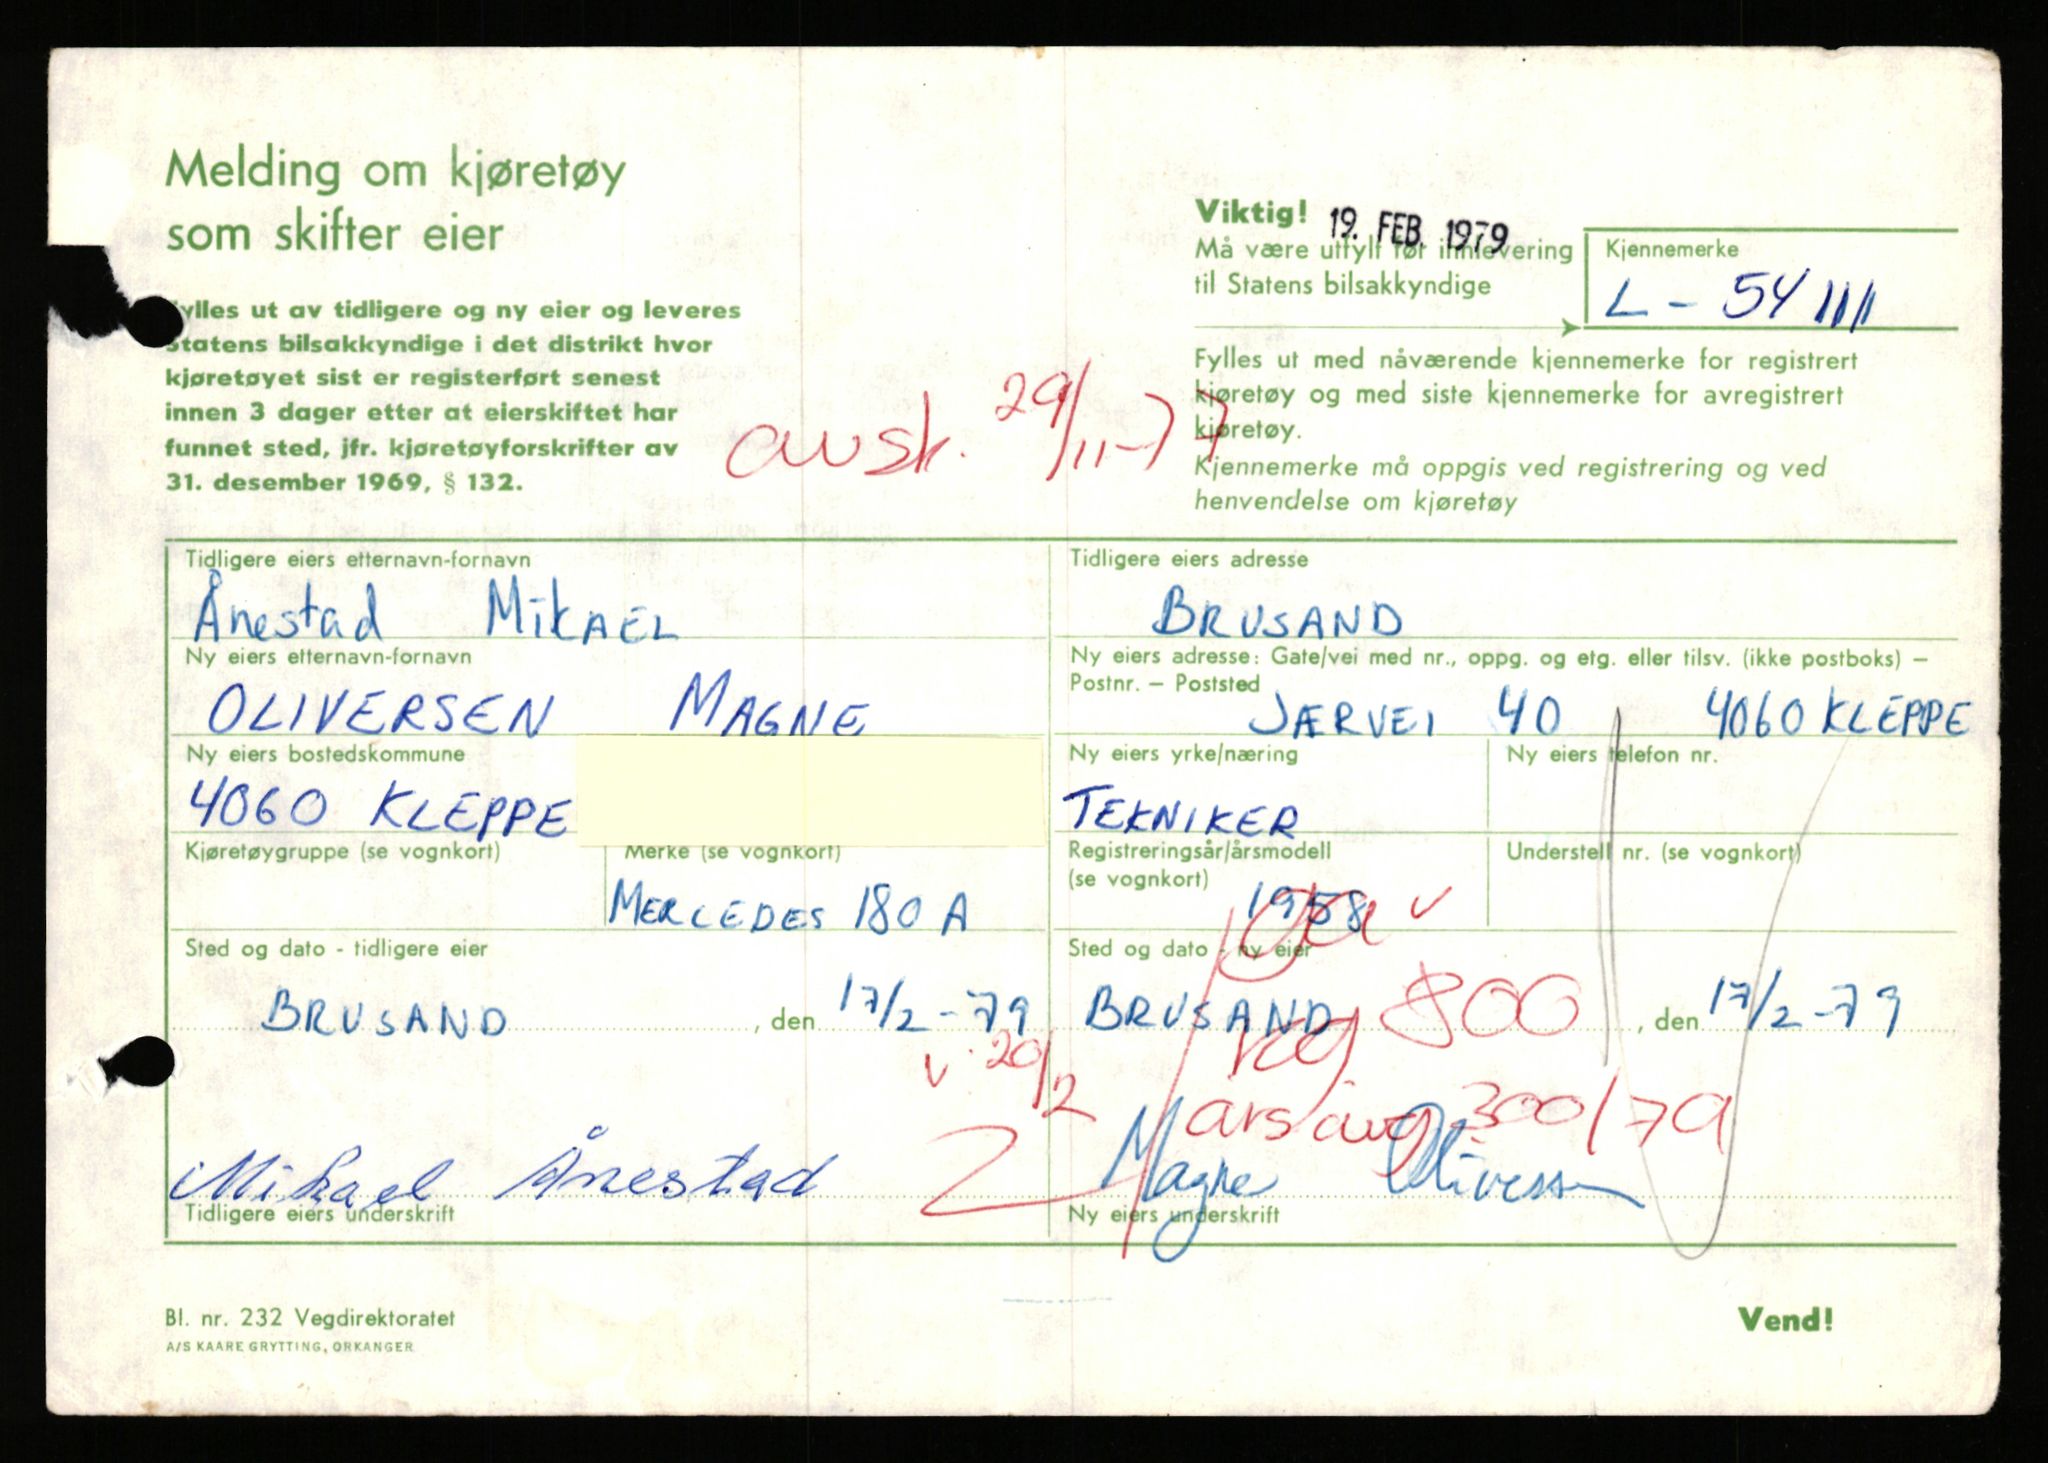 Melding om kjøretøy
som skifter eier
Fylles ut av tidligere og ny eier og leveres
Statens bilsakkyndige i det distrikt hvor
kjøretøyet sist er registerført senest
innen 3 dager etter at eierskiftet har
funnet sted, jfr. kjøretøyforskrifter av
31. desember 1969, § 132.
avsk. 29/11-77
Viktig! 19. FEB. 1979
Må være utfylt før innlevering
til Statens bilsakkyndige
Kjennemerke
L - 54111
Fylles ut med nåværende kjennemerke for registrert
kjøretøy og med siste kjennemerke for avregistrert
kjøretøy.
Kjennemerke må oppgis ved registrering og ved
henvendelse om kjøretøy
Tidligere eiers etternavn-fornavn
Ånestad Mikael
Tidligere eiers adresse
BRUSAND
Ny eiers etternavn-fornavn
OLIVERSEN MAGNE
Ny eiers adresse: Gate/vei med nr., oppg. og etg. eller tilsv. (ikke postboks) –
Postnr. – Poststed
JÆRVEI 40 4060 KLEPPE
Ny eiers bostedskommune
4060 KLEPPE
Ny eiers yrke/næring
TEKNIKER
Ny eiers telefon nr.
Kjøretøygruppe (se vognkort)
Merke (se vognkort)
MERCEDES 180 A
Registreringsår/årsmodell
(se vognkort)
1958
Understell nr. (se vognkort)
Sted og dato - tidligere eier
BRUSAND, den 17/2-79
Sted og dato - ny eier
BRUSAND, den 17/2-79
v. 20/2
800
årsavg 300/79
Mikael Ånestad
Tidligere eiers underskrift
Magne Oliversen
Ny eiers underskrift
Bl. nr. 232 Vegdirektoratet
A/S KAARE GRYTTING, ORKANGER
Vend!